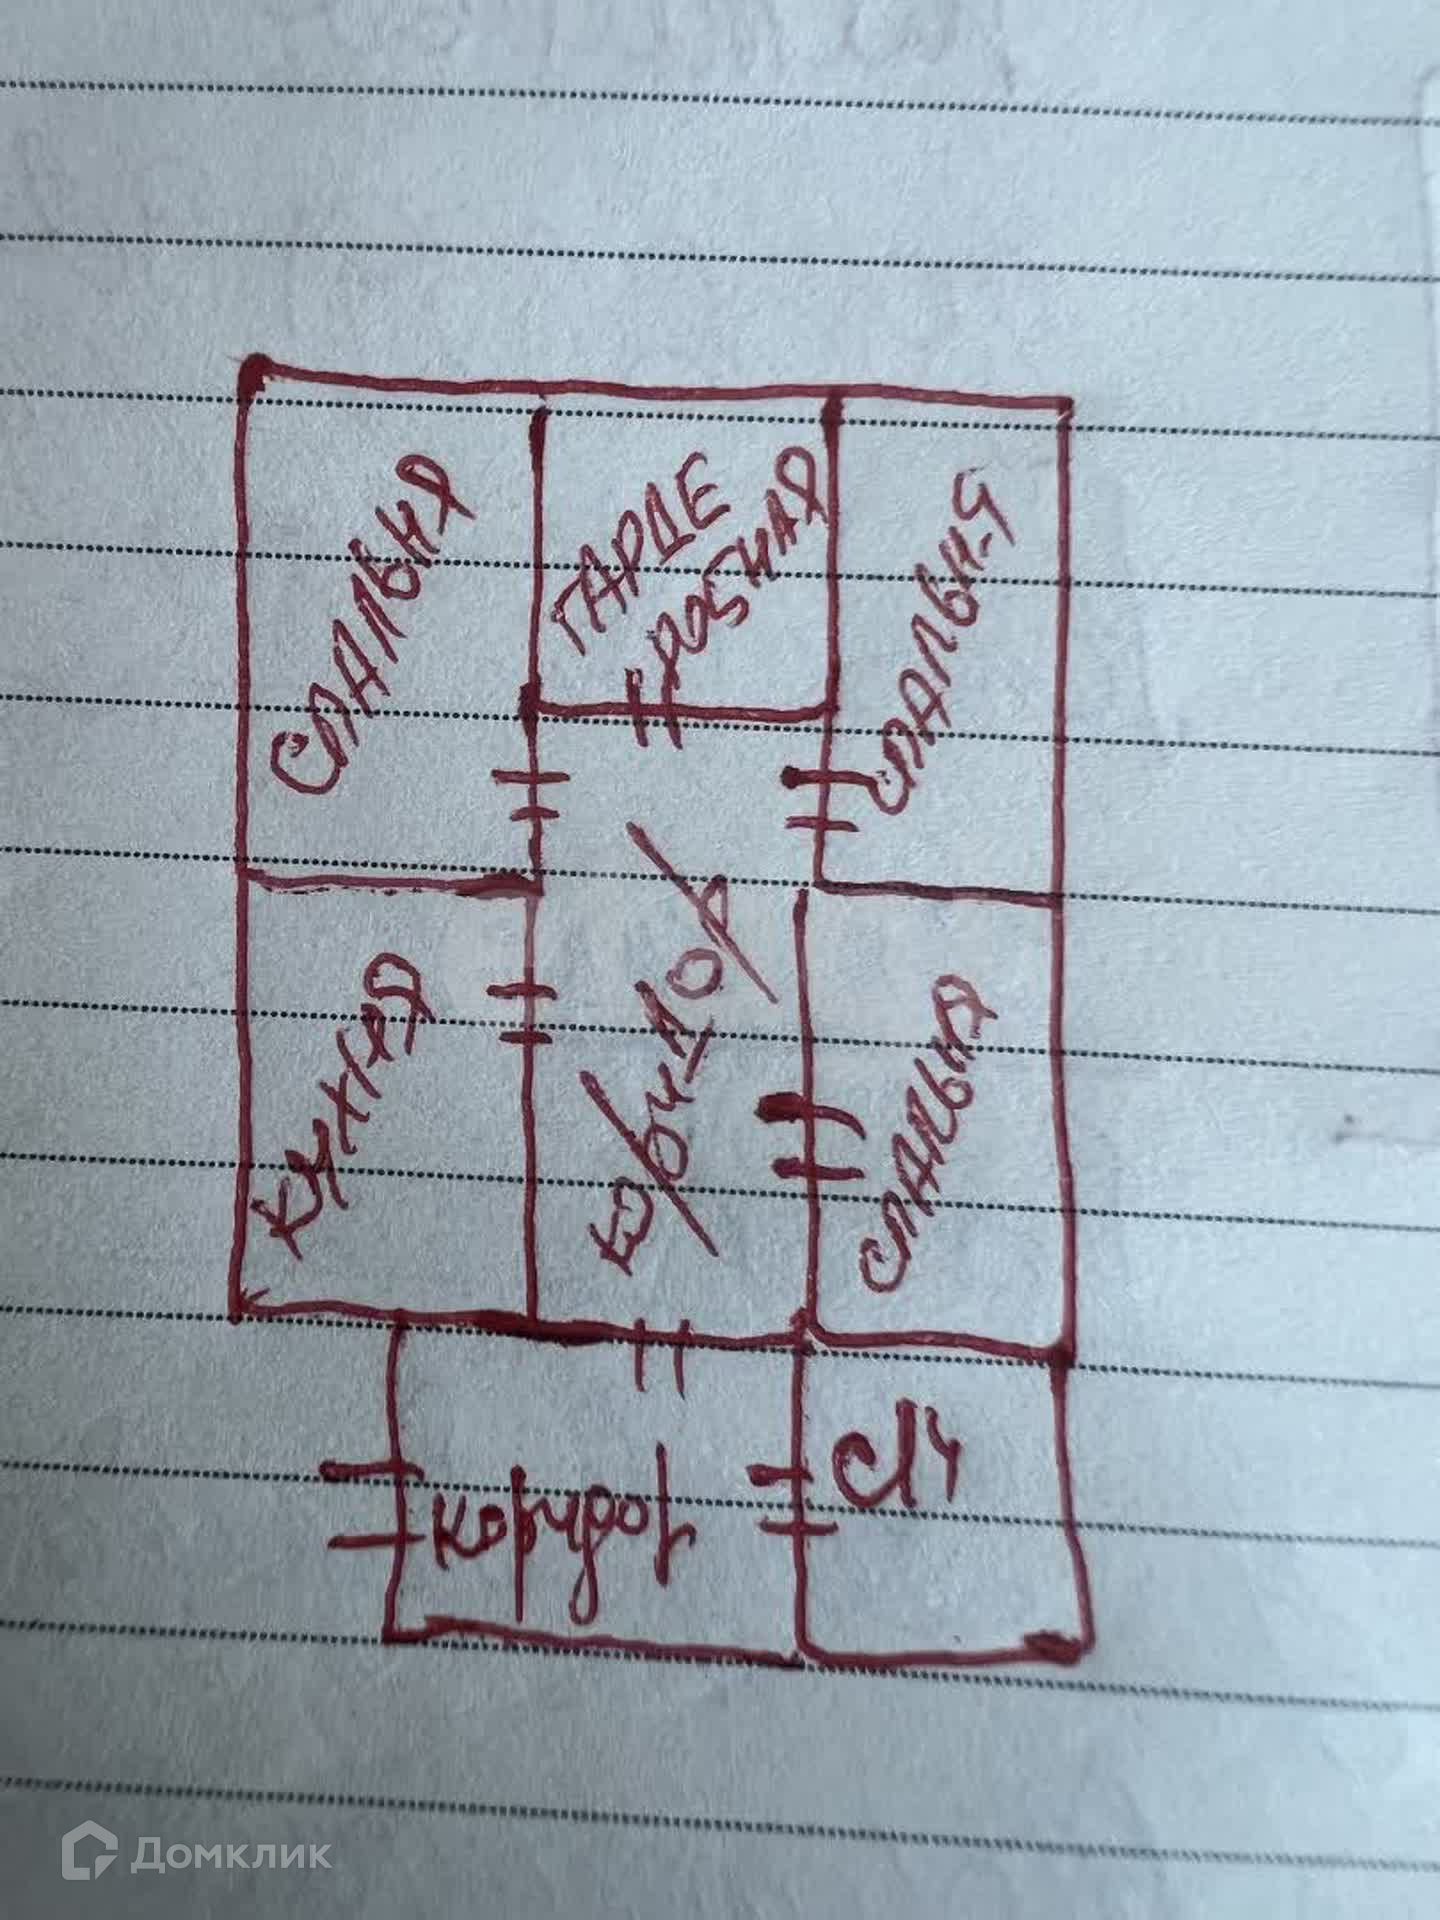 СПАЛЬНЯ
ГАРДЕ
РОБНАЯ
СПАЛЬН-Я
КУХНЯ
КОРИДОР
СПАЛЬНЯ
Коридор
С/У
Домклик